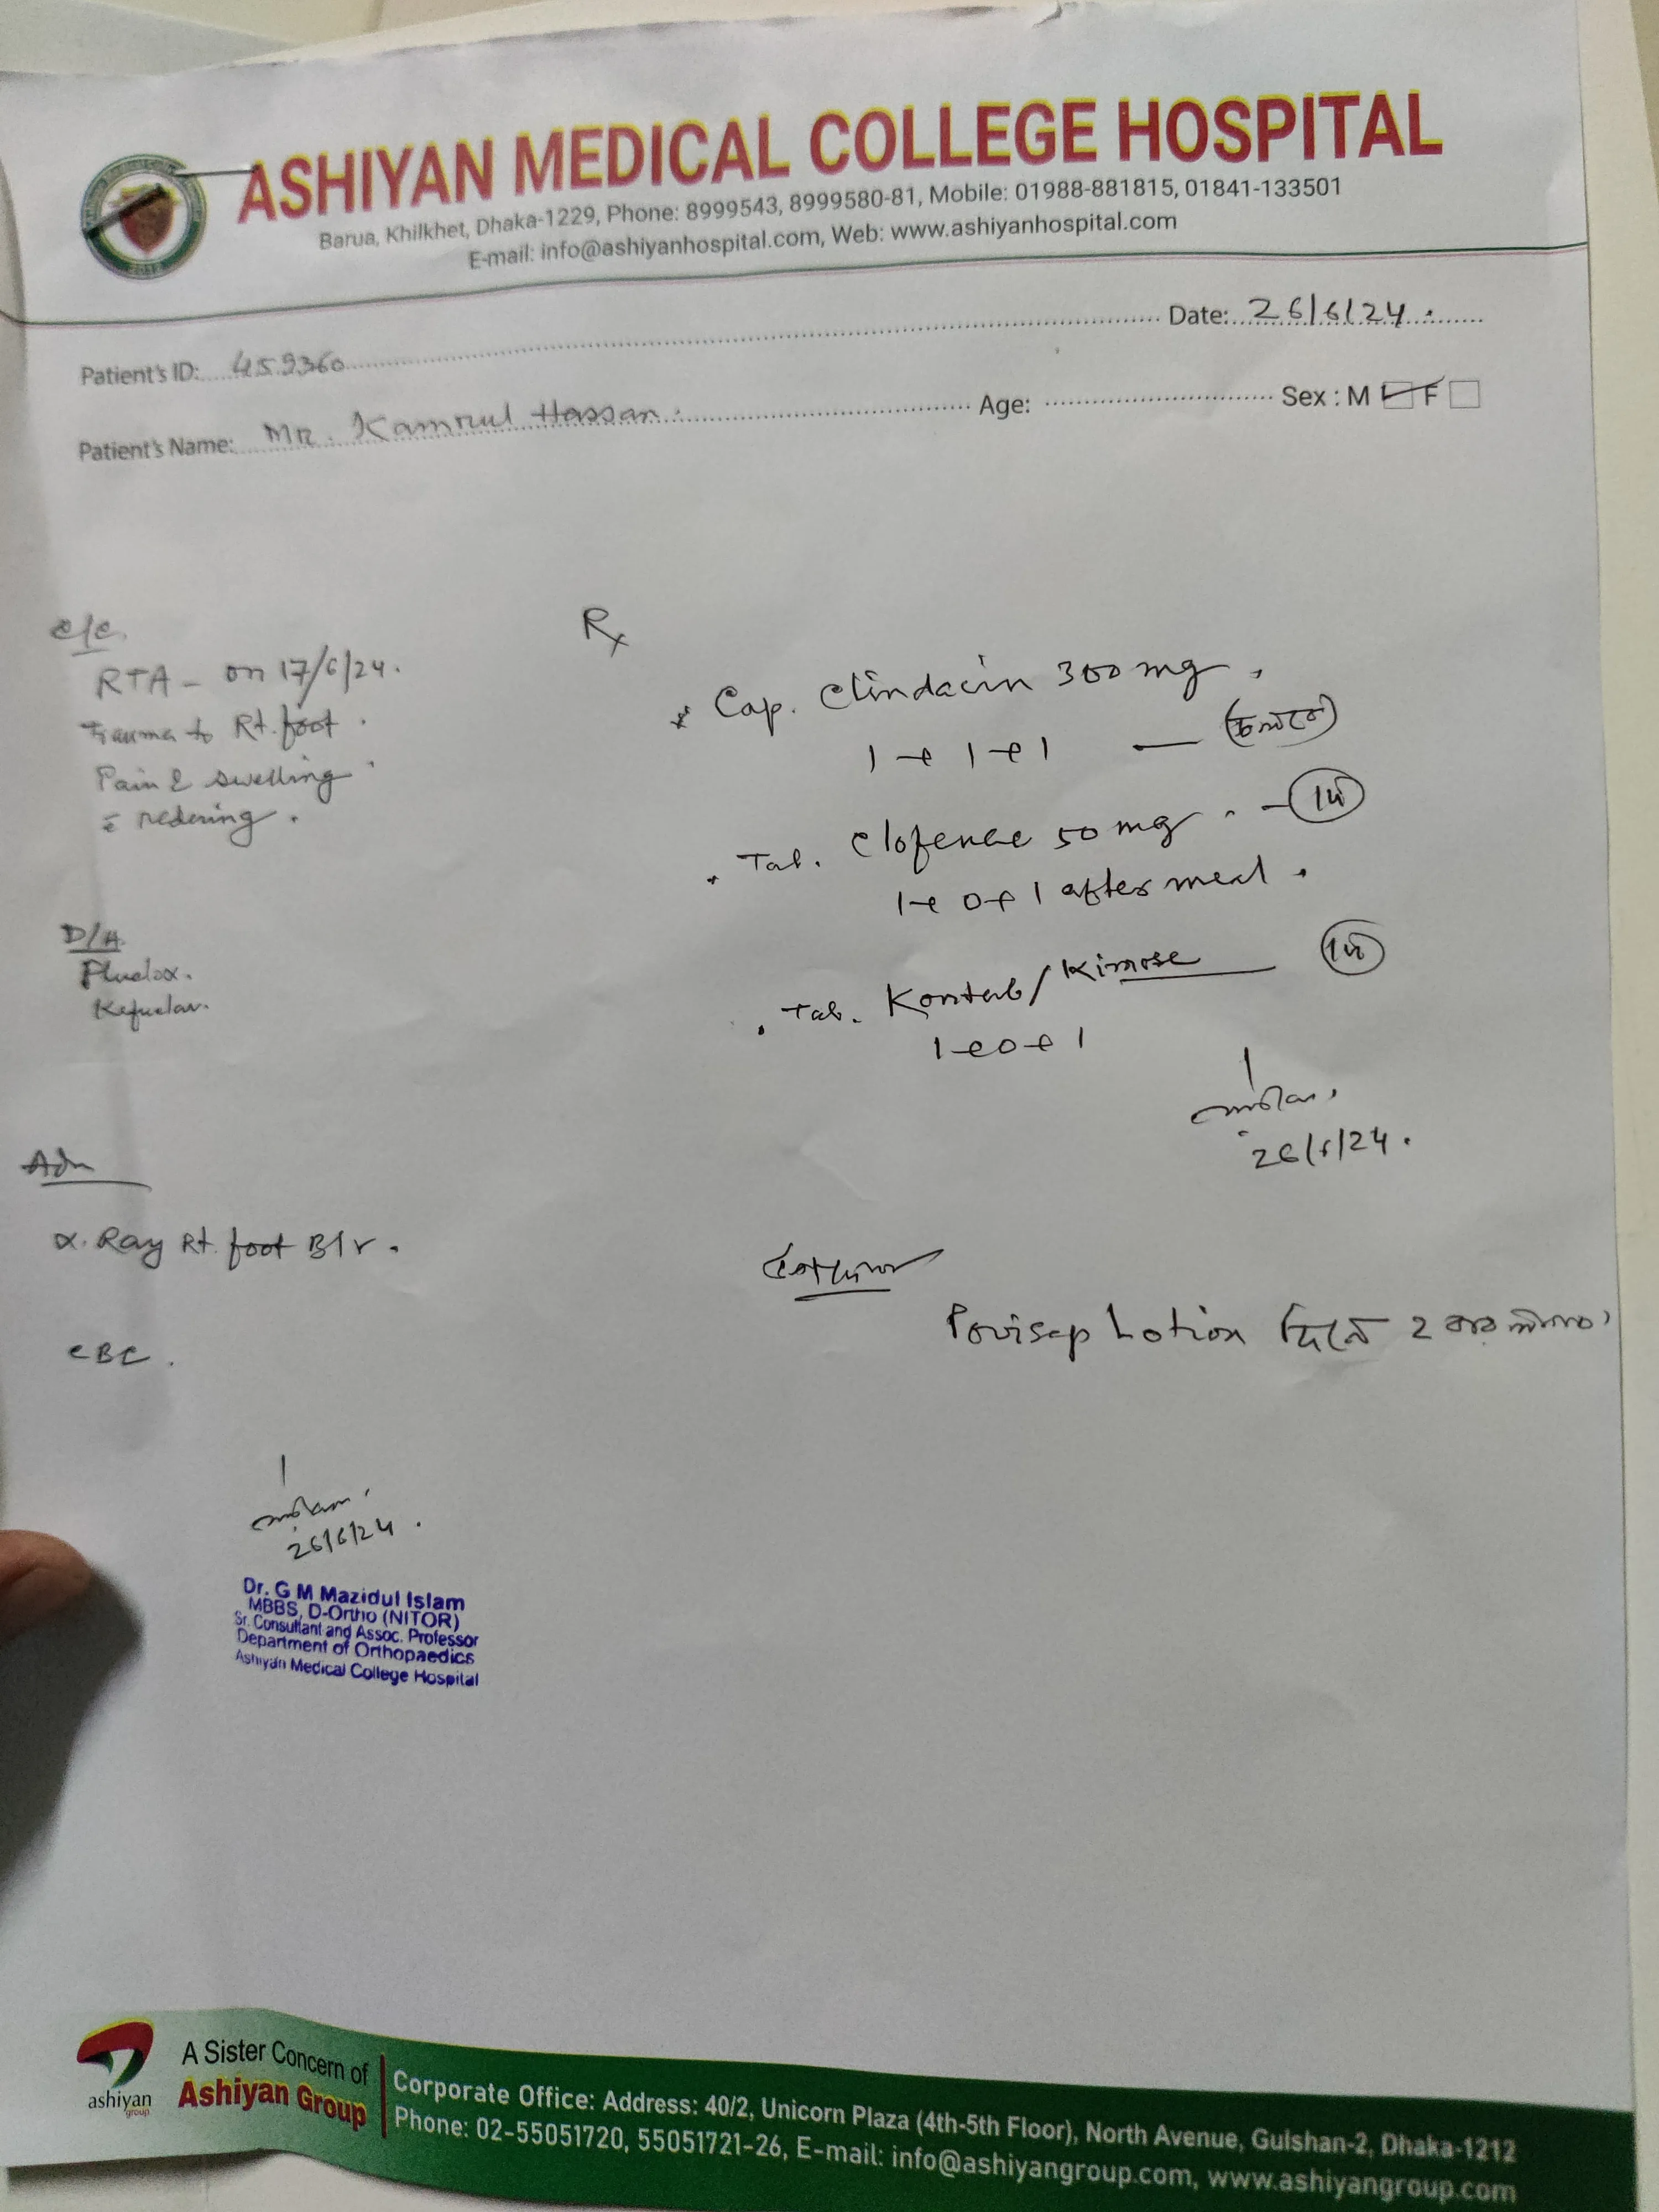 ASHIYAN MEDICAL COLLEGE HOSPITAL
Barua, Khilkhet, Dhaka-1229, Phone: 8999543, 8999580-81, Mobile: 01988-881815, 01841-133501
E-mail: info@ashiyanhospital.com, Web: www.ashiyanhospital.com
2012
Date: 26/6/24.
Patient's ID: 459360
Patient's Name: MR. Kamrul Hassan. Age: Sex : M F
C/C.
RTA - on 17/6/24.
Trauma to Rt. foot.
Pain & swelling
D/H
Adv
X. Ray Rt. foot B/V.
CBC.
26/6/24.
Dr. G M Mazidul Islam
MBBS, D-Ortho (NITOR)
Sr. Consultant and Assoc. Professor
Department of Orthopaedics
Ashiyan Medical College Hospital
Rx
Cap. Clindacin 300 mg.
1 + 1 + 1 — (চলবে)
Tab. Clofenac 50 mg. —
1 + 0 + 1 after meal.
Tab. /
1 + 0 + 1
26/6/24.
Povisep Lotion দিনে 2 বার
ashiyan
group
A Sister Concern of
Ashiyan Group
Corporate Office: Address: 40/2, Unicorn Plaza (4th-5th Floor), North Avenue, Gulshan-2, Dhaka-1212
Phone: 02-55051720, 55051721-26, E-mail: info@ashiyangroup.com, www.ashiyangroup.com